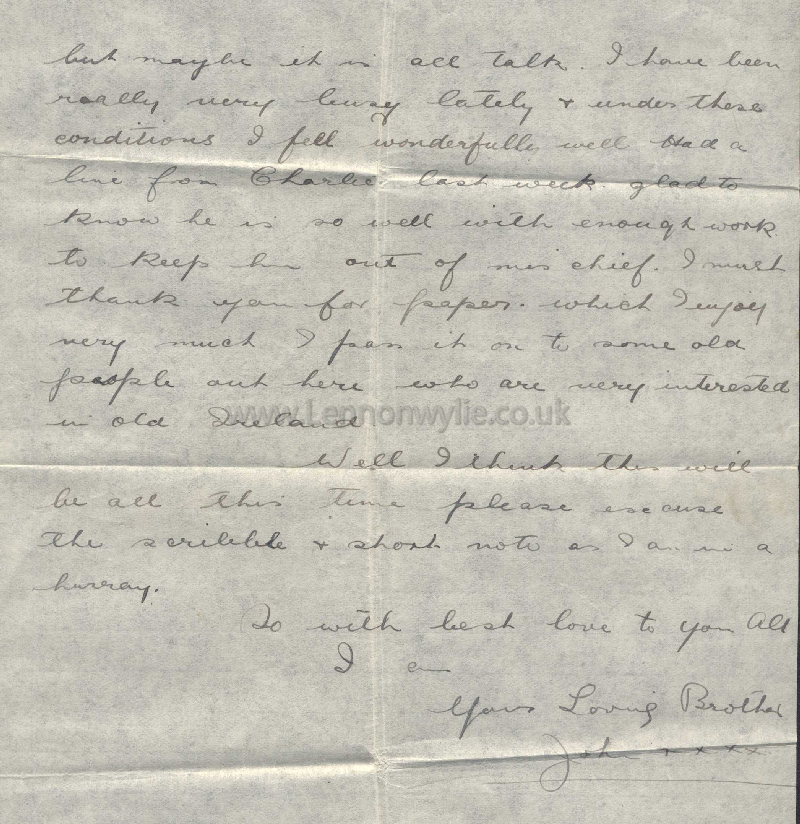 but maybe it is all talk. I have been
really very busy lately & under these
conditions I fell wonderfully well Had a
line from Charlie last week. glad to
know he is so well with enough work
to keep him out of mischief. I must
thank you for paper. which I enjoy
very much I pass it on to some old
people out here who are very interested
in old Ireland
www.Lennonwylie.co.uk
Well I think this will
be all this time please escause
the scribble & short note as I am in a
hurray.
So with best love to you All
I am
Yours Loving Brother
John x x x x